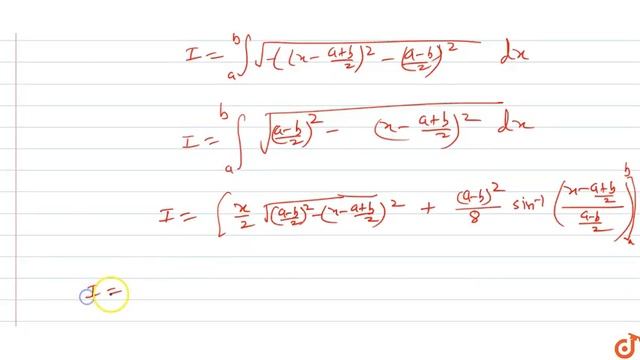 I = ₐ∫ᵇ √(-((x - (a+b)/2)² - ((a-b)/2)²)) dx
I = ₐ∫ᵇ √(((a-b)/2)² - (x - (a+b)/2)²) dx
I = [x/2 √(((a-b)/2)² - (x - (a+b)/2)²) + (a-b)²/8 sin⁻¹((x - (a+b)/2)/((a-b)/2))]ᵇ
I =